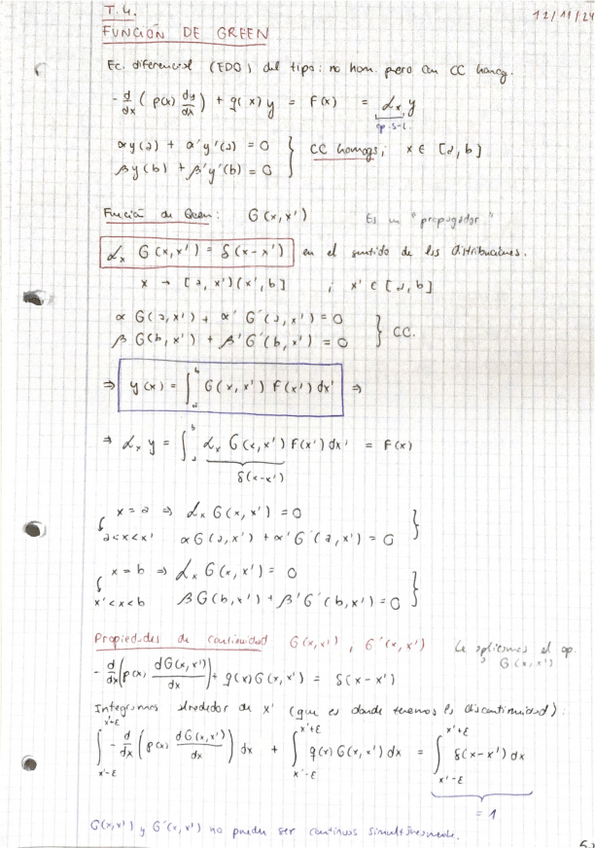 T.4.
12/11/24
FUNCIÓN DE GREEN
Ec. diferencial (EDO) del tipo: no hom. pero con CC homog.
- d/dx ( p(x) dy/dx ) + q(x) y = F(x) = ℒₓ y
op. S-L.
αy(a) + α'y'(a) = 0
βy(b) + β'y'(b) = 0 } CC homogs; x ∈ [a, b]
Función de Green: G(x,x') Es un "propagador"
ℒₓ G(x,x') = δ(x-x') en el sentido de las distribuciones.
x → [a, x')(x', b] ; x' ∈ [a, b]
α G(a,x') + α' G'(a,x') = 0
β G(b,x') + β' G'(b,x') = 0 } CC.
⇒ y(x) = ∫ₐᵇ G(x,x') F(x') dx' ⇒
⇒ ℒₓ y = ∫ₐᵇ ℒₓ G(x,x') F(x') dx' = F(x)
δ(x-x')
x = a ⇒ ℒₓ G(x,x') = 0
a<x<x' αG(a,x') + α'G'(a,x') = 0 }
x = b ⇒ ℒₓ G(x,x') = 0
x'<x<b βG(b,x') + β'G'(b,x') = 0 }
Propiedades de continuidad G(x,x') , G'(x,x') Le aplicamos el op.
a G(x,x')
- d/dx ( p(x) dG(x,x')/dx ) + q(x) G(x,x') = δ(x-x')
Integramos alrededor de x' (que es donde tenemos la discontinuidad):
∫_{x'-ε}^{x'+ε} - d/dx ( p(x) dG(x,x')/dx ) dx + ∫_{x'-ε}^{x'+ε} q(x) G(x,x') dx = ∫_{x'-ε}^{x'+ε} δ(x-x') dx
= 1
G(x,x') y G'(x,x') no pueden ser continuas simultáneamente.